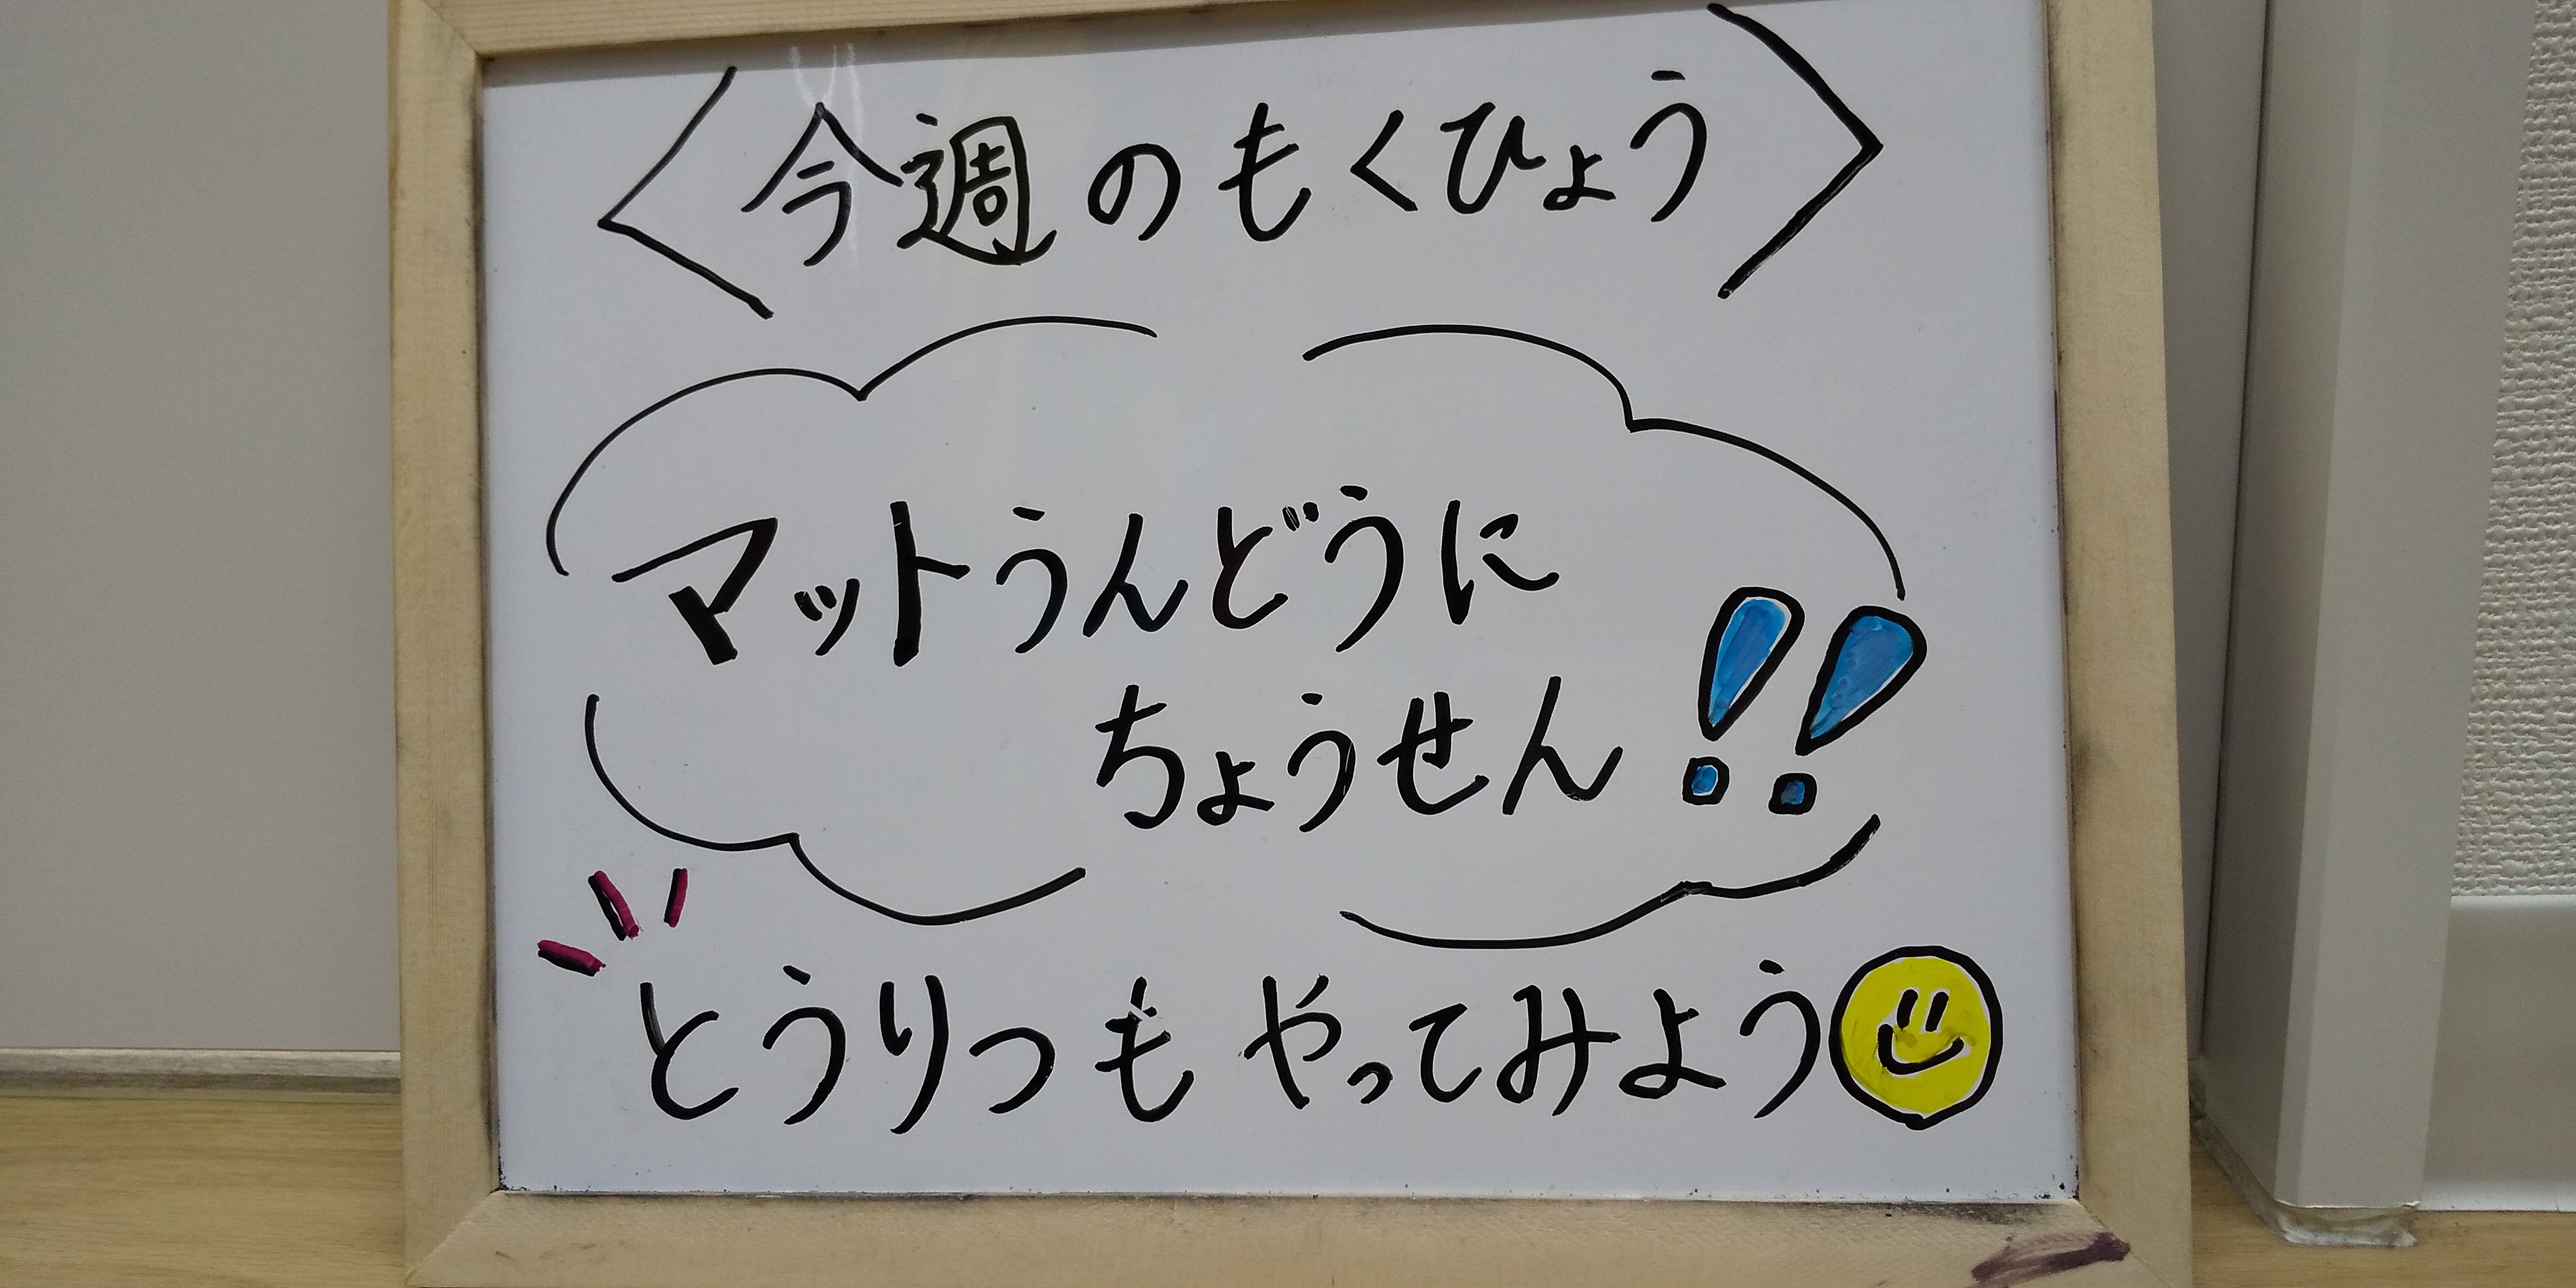 〈今週のもくひょう〉
マットうんどうに
ちょうせん!!
とうりつも やってみよう